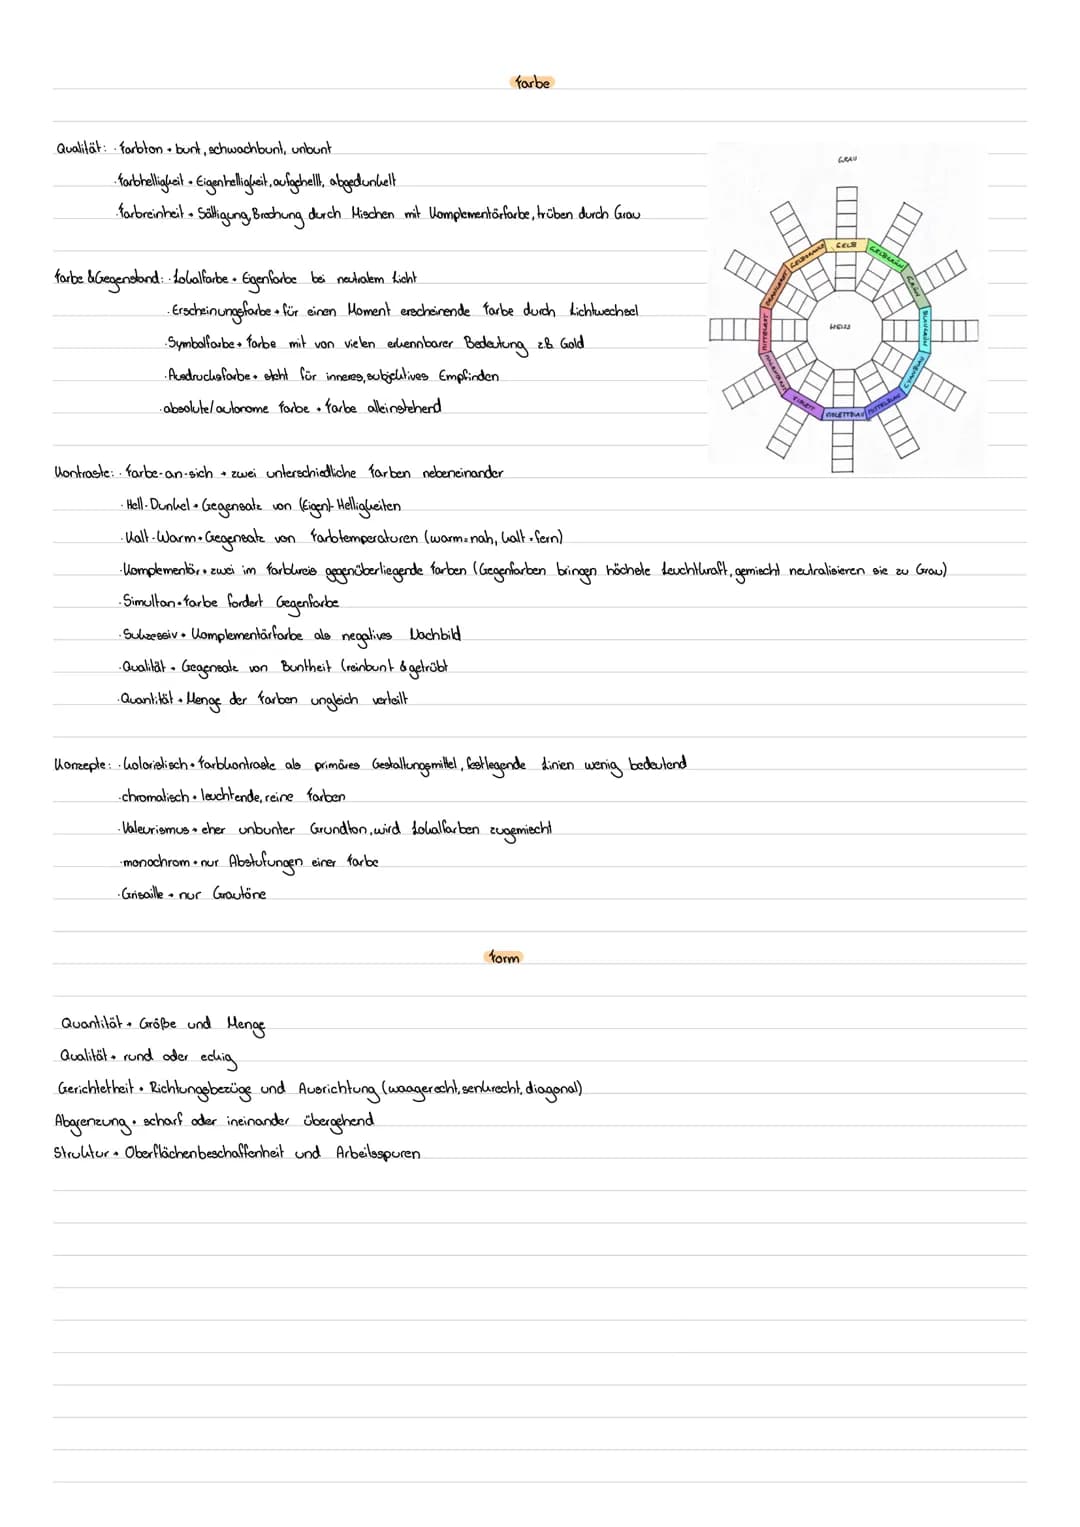 Farbe
Qualität: · Farbton → bunt, schwachbunt, unbunt
· Farbhelligkeit → Eigenhelligkeit, aufgehellt, abgedunkelt
· Farbreinheit → Sättigung, Brechung durch Mischen mit Komplementärfarbe, trüben durch Grau
Farbe & Gegenstand: · Lokalfarbe → Egenfarbe bei neutralem Licht
· Erscheinungsfarbe → für einen Moment erscheinende Farbe durch Lichtwechsel
· Symbolfarbe → Farbe mit von vielen erkennbarer Bedeutung z.B. Gold
· Ausdrucksfarbe → steht für inneres, subjektives Empfinden
· absolute/autorome Farbe → Farbe alleinstehend
Kontraste: · Farbe-an-sich → zwei unterschiedliche Farben nebeneinander
· Hell-Dunkel → Gegensatz von (Eigen)-Helligkeiten
· Kalt-Warm → Gegensatz von Farbtemperaturen (warm=nah, kalt=fern)
· Komplementär → zwei im Farbkreis gegenüberliegende Farben (Gegenfarben bringen höchste Leuchtkraft, gemischt neutralisieren sie zu Grau)
· Simultan → Farbe fordert Gegenfarbe
· Sukzessiv → Komplementärfarbe als negatives Nachbild
· Qualität → Gegensatz von Buntheit (reinbunt & getrübt
· Quantität → Menge der Farben ungleich verteilt
Konzepte: · koloristisch → Farbkontraste als primäres Gestaltungsmittel, festlegende Linien wenig bedeutend
· chromatisch → leuchtende, reine Farben
· Valeurismus → eher unbunter Grundton, wird Lokalfarben zugemischt
· monochrom → nur Abstufungen einer Farbe
· Grisaille → nur Grautöne
GRAU
GELB
GELBGRÜN
GRÜN
BLAUGRÜN
CYANBLAU
MITTELBLAU
VIOLETTBLAU
VIOLETT
MITTELROT
ORANGEROT
GELBORANGE
WEISS
Form
Quantität → Größe und Menge
Qualität → rund oder eckig
Gerichtetheit → Richtungsbezüge und Ausrichtung (waagerecht, senkrecht, diagonal)
Abgrenzung → scharf oder ineinander übergehend
Struktur → Oberflächenbeschaffenheit und Arbeitsspuren